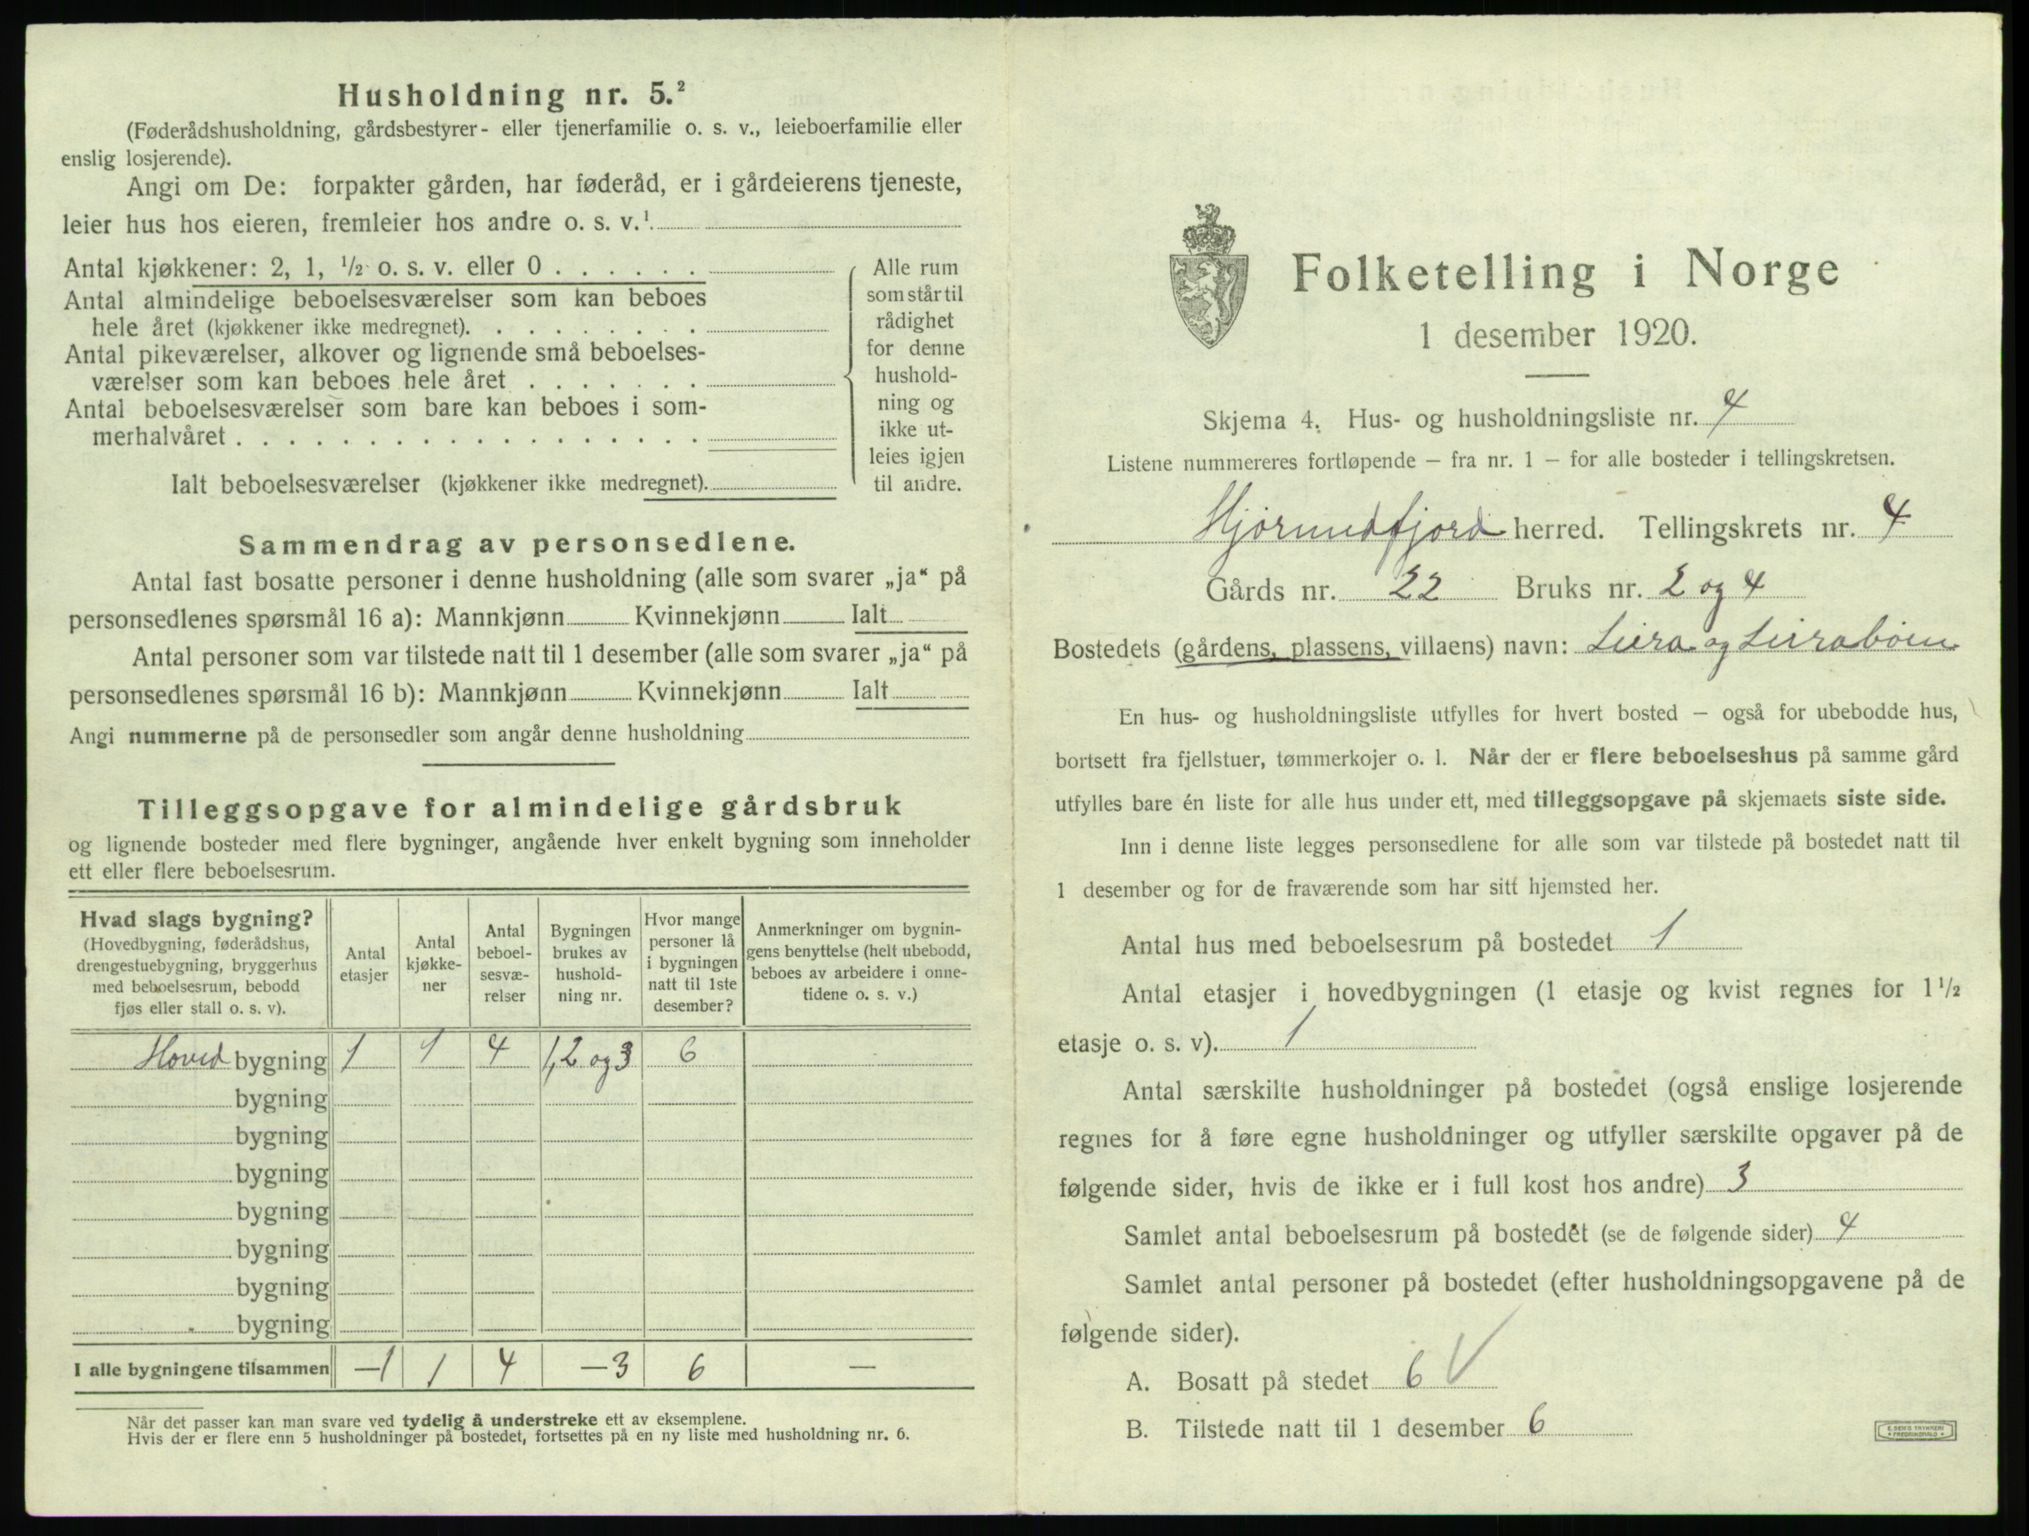 Husholdning nr. 5.²
(Føderådshusholdning, gårdsbestyrer- eller tjenerfamilie o. s. v., leieboerfamilie eller
enslig losjerende).
Angi om De: forpakter gården, har føderåd, er i gårdeierens tjeneste,
leier hus hos eieren, fremleier hos andre o. s. v.¹
Antal kjøkkener: 2, 1, ½ o. s. v. eller 0 . . . . . .
Antal almindelige beboelsesværelser som kan beboes
hele året (kjøkkener ikke medregnet). . . . . . . . .
Antal pikeværelser, alkover og lignende små beboelses-
værelser som kan beboes hele året . . . . . . .
Antal beboelsesværelser som bare kan beboes i som-
merhalvåret . . . . . . . . . . . . . . . . . .
Ialt beboelsesværelser (kjøkkener ikke medregnet).
Alle rum
som står til
rådighet
for denne
hushold-
ning og
ikke ut-
leies igjen
til andre.
Sammendrag av personsedlene.
Antal fast bosatte personer i denne husholdning (alle som svarer „ja“ på
personsedlenes spørsmål 16 a): Mannkjønn Kvinnekjønn Ialt
Antal personer som var tilstede natt til 1 desember (alle som svarer „ja“ på
personsedlenes spørsmål 16 b): Mannkjønn Kvinnekjønn Ialt
Angi nummerne på de personsedler som angår denne husholdning
Tilleggsopgave for almindelige gårdsbruk
og lignende bosteder med flere bygninger, angående hver enkelt bygning som inneholder
ett eller flere beboelsesrum.
Hvad slags bygning?
(Hovedbygning, føderådshus,
drengestuebygning, bryggerhus
med beboelsesrum, bebodd
fjøs eller stall o. s. v).
Antal
etasjer
Antal
kjøkke-
ner
Antal
beboel-
sesvæ-
relser
Bygningen
brukes av
hushold-
ning nr.
Hvor mange
personer lå
i bygningen
natt til 1ste
desember?
Anmerkninger om bygnin-
gens benyttelse (helt ubebodd,
beboes av arbeidere i onne-
tidene o. s. v.)
Hoved bygning 1 1 4 1,2 og 3 6
bygning
bygning
bygning
bygning
bygning
bygning
bygning
I alle bygningene tilsammen —1 1 4 —3 6 —
Når det passer kan man svare ved tydelig å understreke ett av eksemplene.
Hvis der er flere enn 5 husholdninger på bostedet, fortsettes på en ny liste med husholdning nr. 6.
Folketelling i Norge
1 desember 1920.
Skjema 4. Hus- og husholdningsliste nr. 4
Listene nummereres fortløpende – fra nr. 1 – for alle bosteder i tellingskretsen.
Hjørundfjord herred. Tellingskrets nr. 4
Gårds nr. 22 Bruks nr. 2 og 4
Bostedets (gårdens, plassens, villaens) navn: Leira og Leirabøen
En hus- og husholdningsliste utfylles for hvert bosted – også for ubebodde hus,
bortsett fra fjellstuer, tømmerkojer o. l. Når der er flere beboelseshus på samme gård
utfylles bare én liste for alle hus under ett, med tilleggsopgave på skjemaets siste side.
Inn i denne liste legges personsedlene for alle som var tilstede på bostedet natt til
1 desember og for de fraværende som har sitt hjemsted her.
Antal hus med beboelsesrum på bostedet 1
Antal etasjer i hovedbygningen (1 etasje og kvist regnes for 1½
etasje o. s. v). 1
Antal særskilte husholdninger på bostedet (også enslige losjerende
regnes for å føre egne husholdninger og utfyller særskilte opgaver på de
følgende sider, hvis de ikke er i full kost hos andre) 3
Samlet antal beboelsesrum på bostedet (se de følgende sider) 4
Samlet antal personer på bostedet (efter husholdningsopgavene på de
følgende sider).
A. Bosatt på stedet 6 V
B. Tilstede natt til 1 desember 6